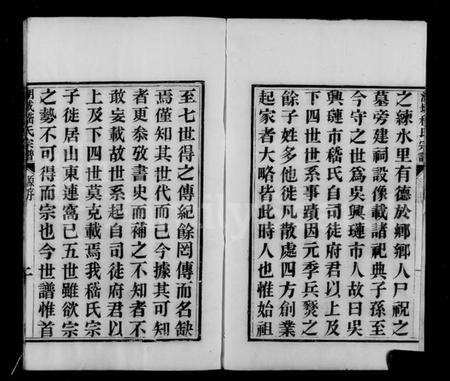 之練水里有德於鄉鄉人尸祝之
墓旁建祠設像載諸祀典子孫至
今守之世爲吳興璉市人故曰吳
興璉市嵇氏自司徒府君以上及
下四世世系事蹟因元季兵燹之
餘子姓多他徙凡散處四方創業
起家者大略皆此時人也惟始祖
至七世得之傳紀餘罔傳而名缺
焉僅知其世代而已今據其可知
者更叅攷書史而補之不知者不
敢妄載故世系起自司徒府君以
上及下四世莫克載焉我嵇氏宗
子徙居山東連窩已五世雖欲宗
之勢不可得而宗也今世譜惟首
嵇氏宗譜
源序